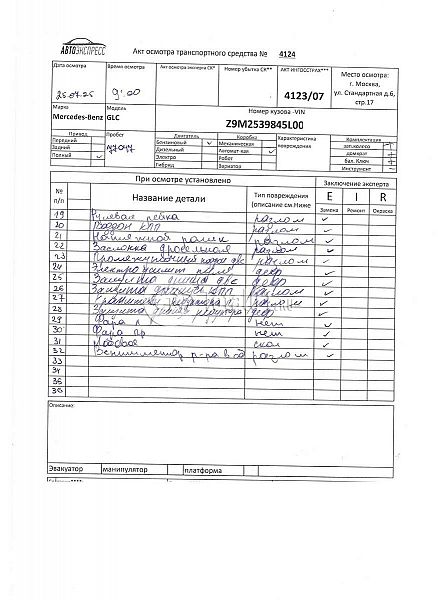 АВТОЭКСПРЕСС
Акт осмотра транспортного средства № 4124
Дата осмотра
Время осмотра
Акт осмотра эксперта СК*
Номер убытка СК**
АКТ ИНГОССТРАХ***
Место осмотра:
г. Москва,
ул. Стандартная д.6,
стр.17
25.07.25
9:00
4123/07
Марка
Mercedes-Benz GLC
Номер кузова -VIN
Z9M2539845L00
Привод
Пробег
Двигатель
Коробка
Характеристика
повреждения
Комплектация
Передний
Задний
Полный
Бензиновый
Дизельный
Электро
Гибрид
Механическая
Автомат-кая
Робот
Вариатор
зап.колесо +
домкрат
бал. Ключ +
Инструмент -
При осмотре установлено
Заключение эксперта
№
п/п
Название детали
Тип повреждения
(описание см.Ниже
E I R
Замена Ремонт Окраска
19 Рулевая рейка разлом
20 Поддон КПП разлом
21 Натяжной ролик разлом
22 Заслонка дроссельная разлом
23 разлом
24 дефр
25 Защита днища две дефр
26 Защита днища КПП разлом
27 разлом
28 дефр
29 Фара л нет
30 Фара пр нет
31 Лобовое скол
32 разлом
33
34
35
36
Описание:
Эвакуатор
манипулятор
платформа